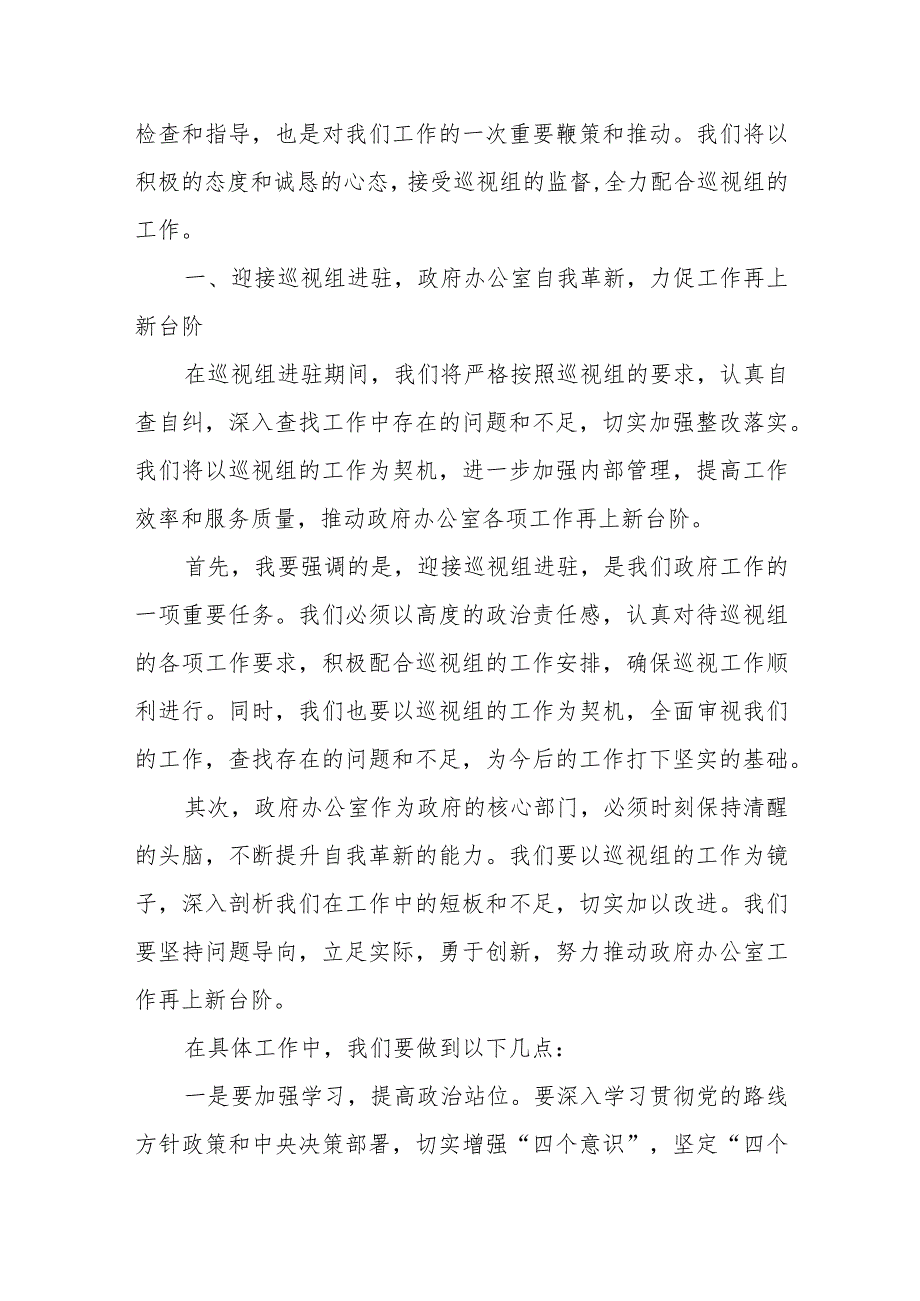 检查和指导，也是对我们工作的一次重要鞭策和推动。我们将以
积极的态度和诚恳的心态,接受巡视组的监督,全力配合巡视组的
工作。
一、迎接巡视组进驻，政府办公室自我革新，力促工作再上
新台阶
在巡视组进驻期间，我们将严格按照巡视组的要求，认真自
查自纠，深入查找工作中存在的问题和不足，切实加强整改落实。
我们将以巡视组的工作为契机，进一步加强内部管理，提高工作
效率和服务质量，推动政府办公室各项工作再上新台阶。
首先，我要强调的是，迎接巡视组进驻，是我们政府工作的
一项重要任务。我们必须以高度的政治责任感，认真对待巡视组
的各项工作要求，积极配合巡视组的工作安排，确保巡视工作顺
利进行。同时，我们也要以巡视组的工作为契机，全面审视我们
的工作，查找存在的问题和不足，为今后的工作打下坚实的基础。
其次，政府办公室作为政府的核心部门，必须时刻保持清醒
的头脑，不断提升自我革新的能力。我们要以巡视组的工作为镜
子，深入剖析我们在工作中的短板和不足，切实加以改进。我们
要坚持问题导向，立足实际，勇于创新，努力推动政府办公室工
作再上新台阶。
在具体工作中，我们要做到以下几点：
一是要加强学习，提高政治站位。要深入学习贯彻党的路线
方针政策和中央决策部署，切实增强“四个意识”，坚定“四个